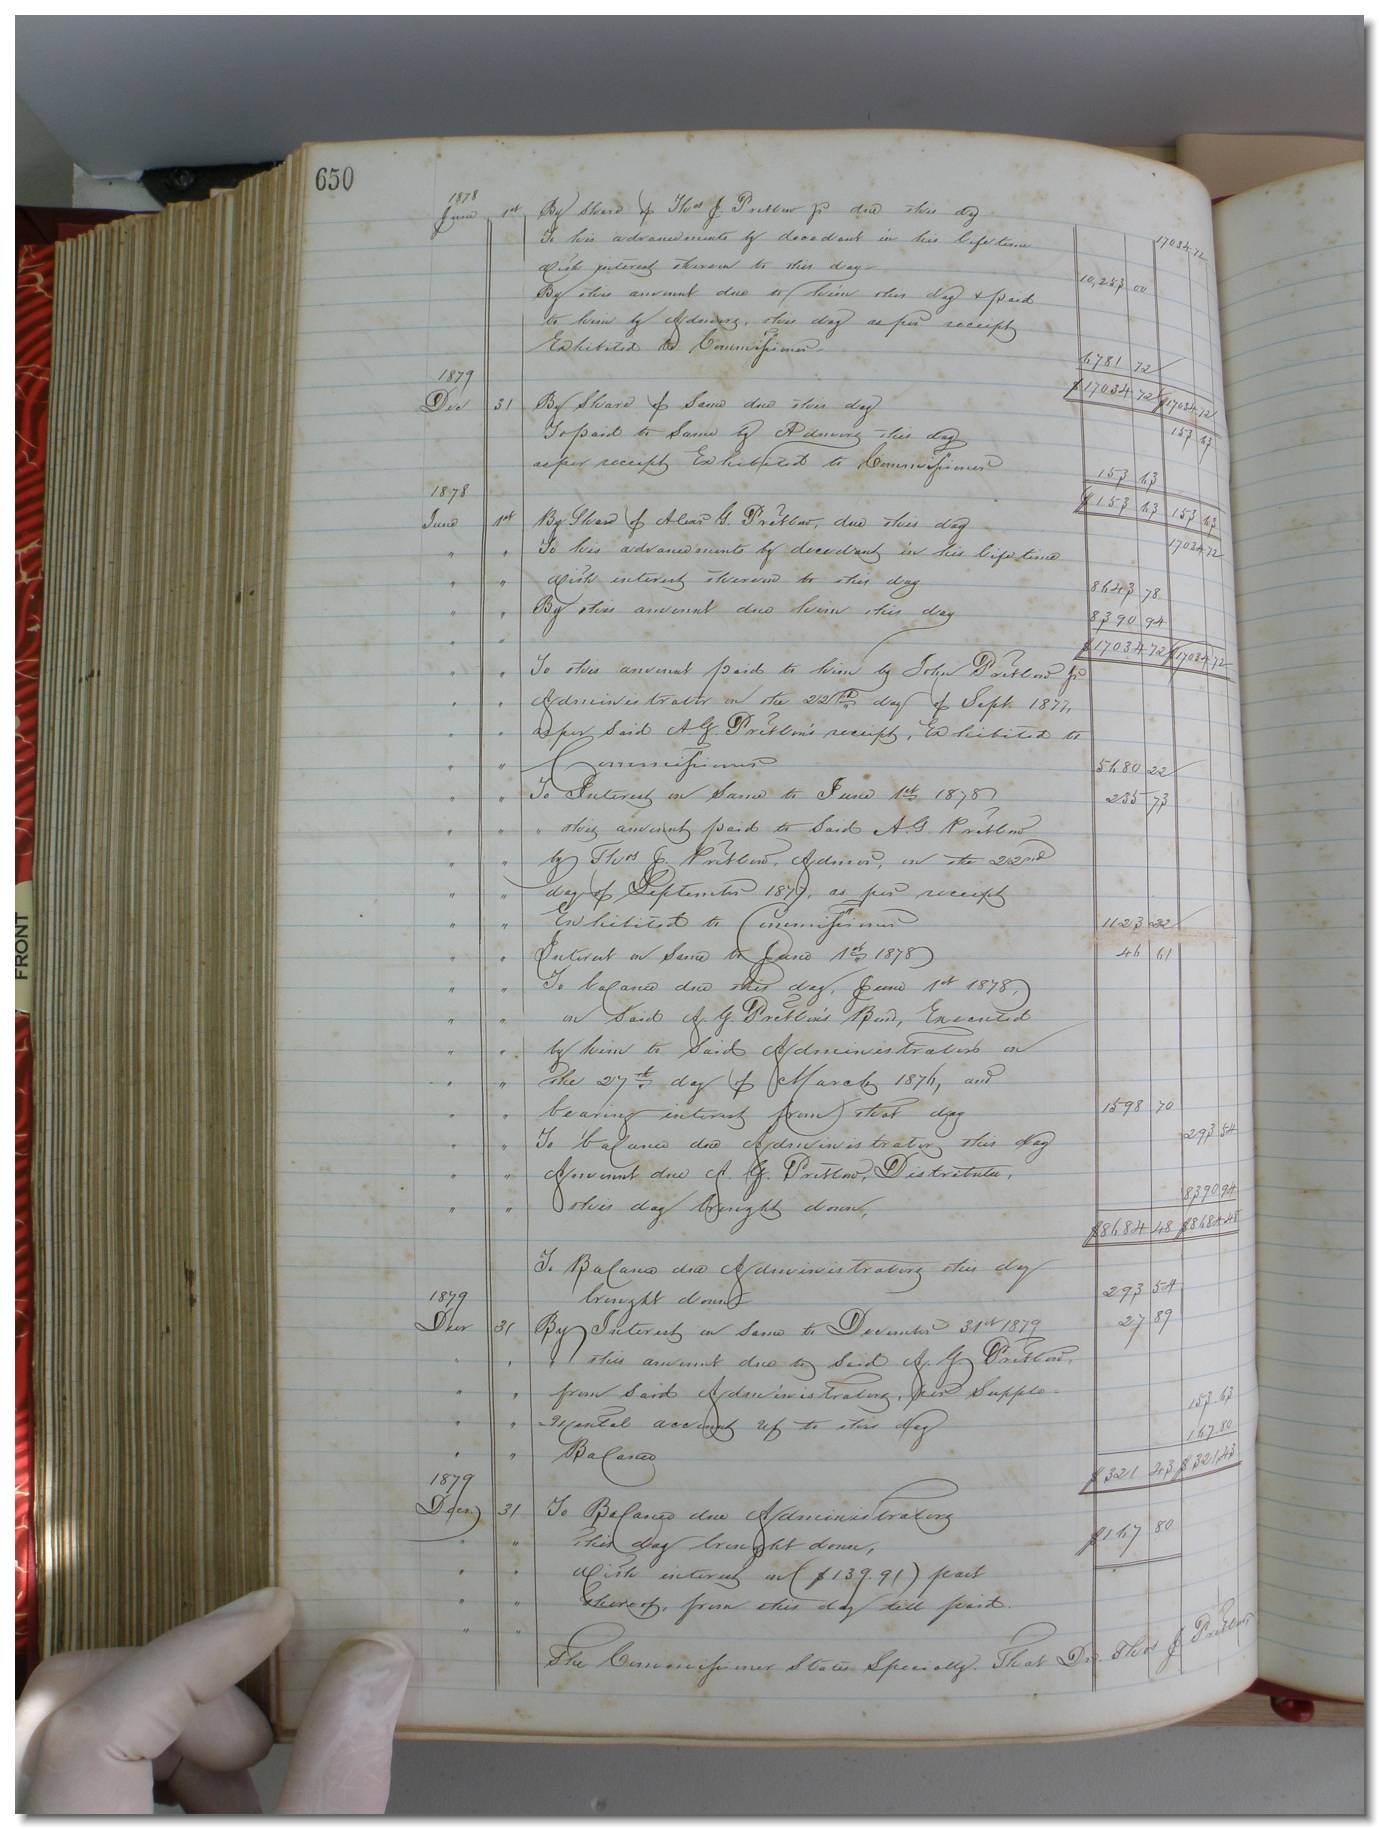 650
1878
June 1st By Share of Thos J. Pretlow Jr due this day 17034.72
To his advancements by decedent in his lifetime
with interest thereon to this day 10,253 00
By this amount due to him this day & paid
to him by Admors, this day as per receipt
Exhibited to Commissioner 6781 72
$17034 72 $17034 72
1879
Dec 31 By Share of Same due this day 153 63
To paid to Same by Admors this day
as per receipt Exhibited to Commissioner 153 63
$153 63 153 63
1878
June 1st By Share of A G. Pretlow, due this day 17034 72
" " To his advancements by decedent in his life time
" " with interest thereon to this day 8643 78
" " By this amount due him this day 8390 94
" " $17034 72 $17034 72
" " To this amount paid to him by John Pretlow Jr
" " Administrator on the 22nd day of Sept. 1877,
" " as per Said A.G. Pretlow's receipt, Exhibited to
" " Commissioner 5680 22
" " To Interest on Same to June 1st 1878 235 73
" " " this amount paid to Said A.G. Pretlow
" " by Thos J. Pretlow, Admor, on the 22nd
" " day of September 1877, as per receipt
" " Exhibited to Commissioner 1123 22
" " Interest on Same to June 1st 1878 46 61
" " To balance due this day, June 1st 1878,
" " on Said A.G. Pretlow's Bond, Executed
" " by him to Said Administrators on
" " the 27th day of March 1876, and
" " bearing interest from that day 1598 70
" " To balance due Administrators this day 293 54
" " Amount due A. G. Pretlow, Distributee,
" " this day brought down, 8390.94
$8684 48 $8684.48
To Balance due Administrators this day
brought down 293 54
1879
Decr 31 By Interest on Same to December 31st 1879 27 89
" " " this amount due to Said A. G. Pretlow,
" " from Said Administrators, per Supple-
" " mental account up to this day 153.63
" " Balance 167.80
$321 43 $321.43
1879
Decr 31 To Balance due Administrators
" " this day brought down, $167 80
" " with interest on ($139.91) part
" " thereof, from this day till paid.
" "
The Commissioner States Specially. That Dr. Thos J Pretlow
FRONT